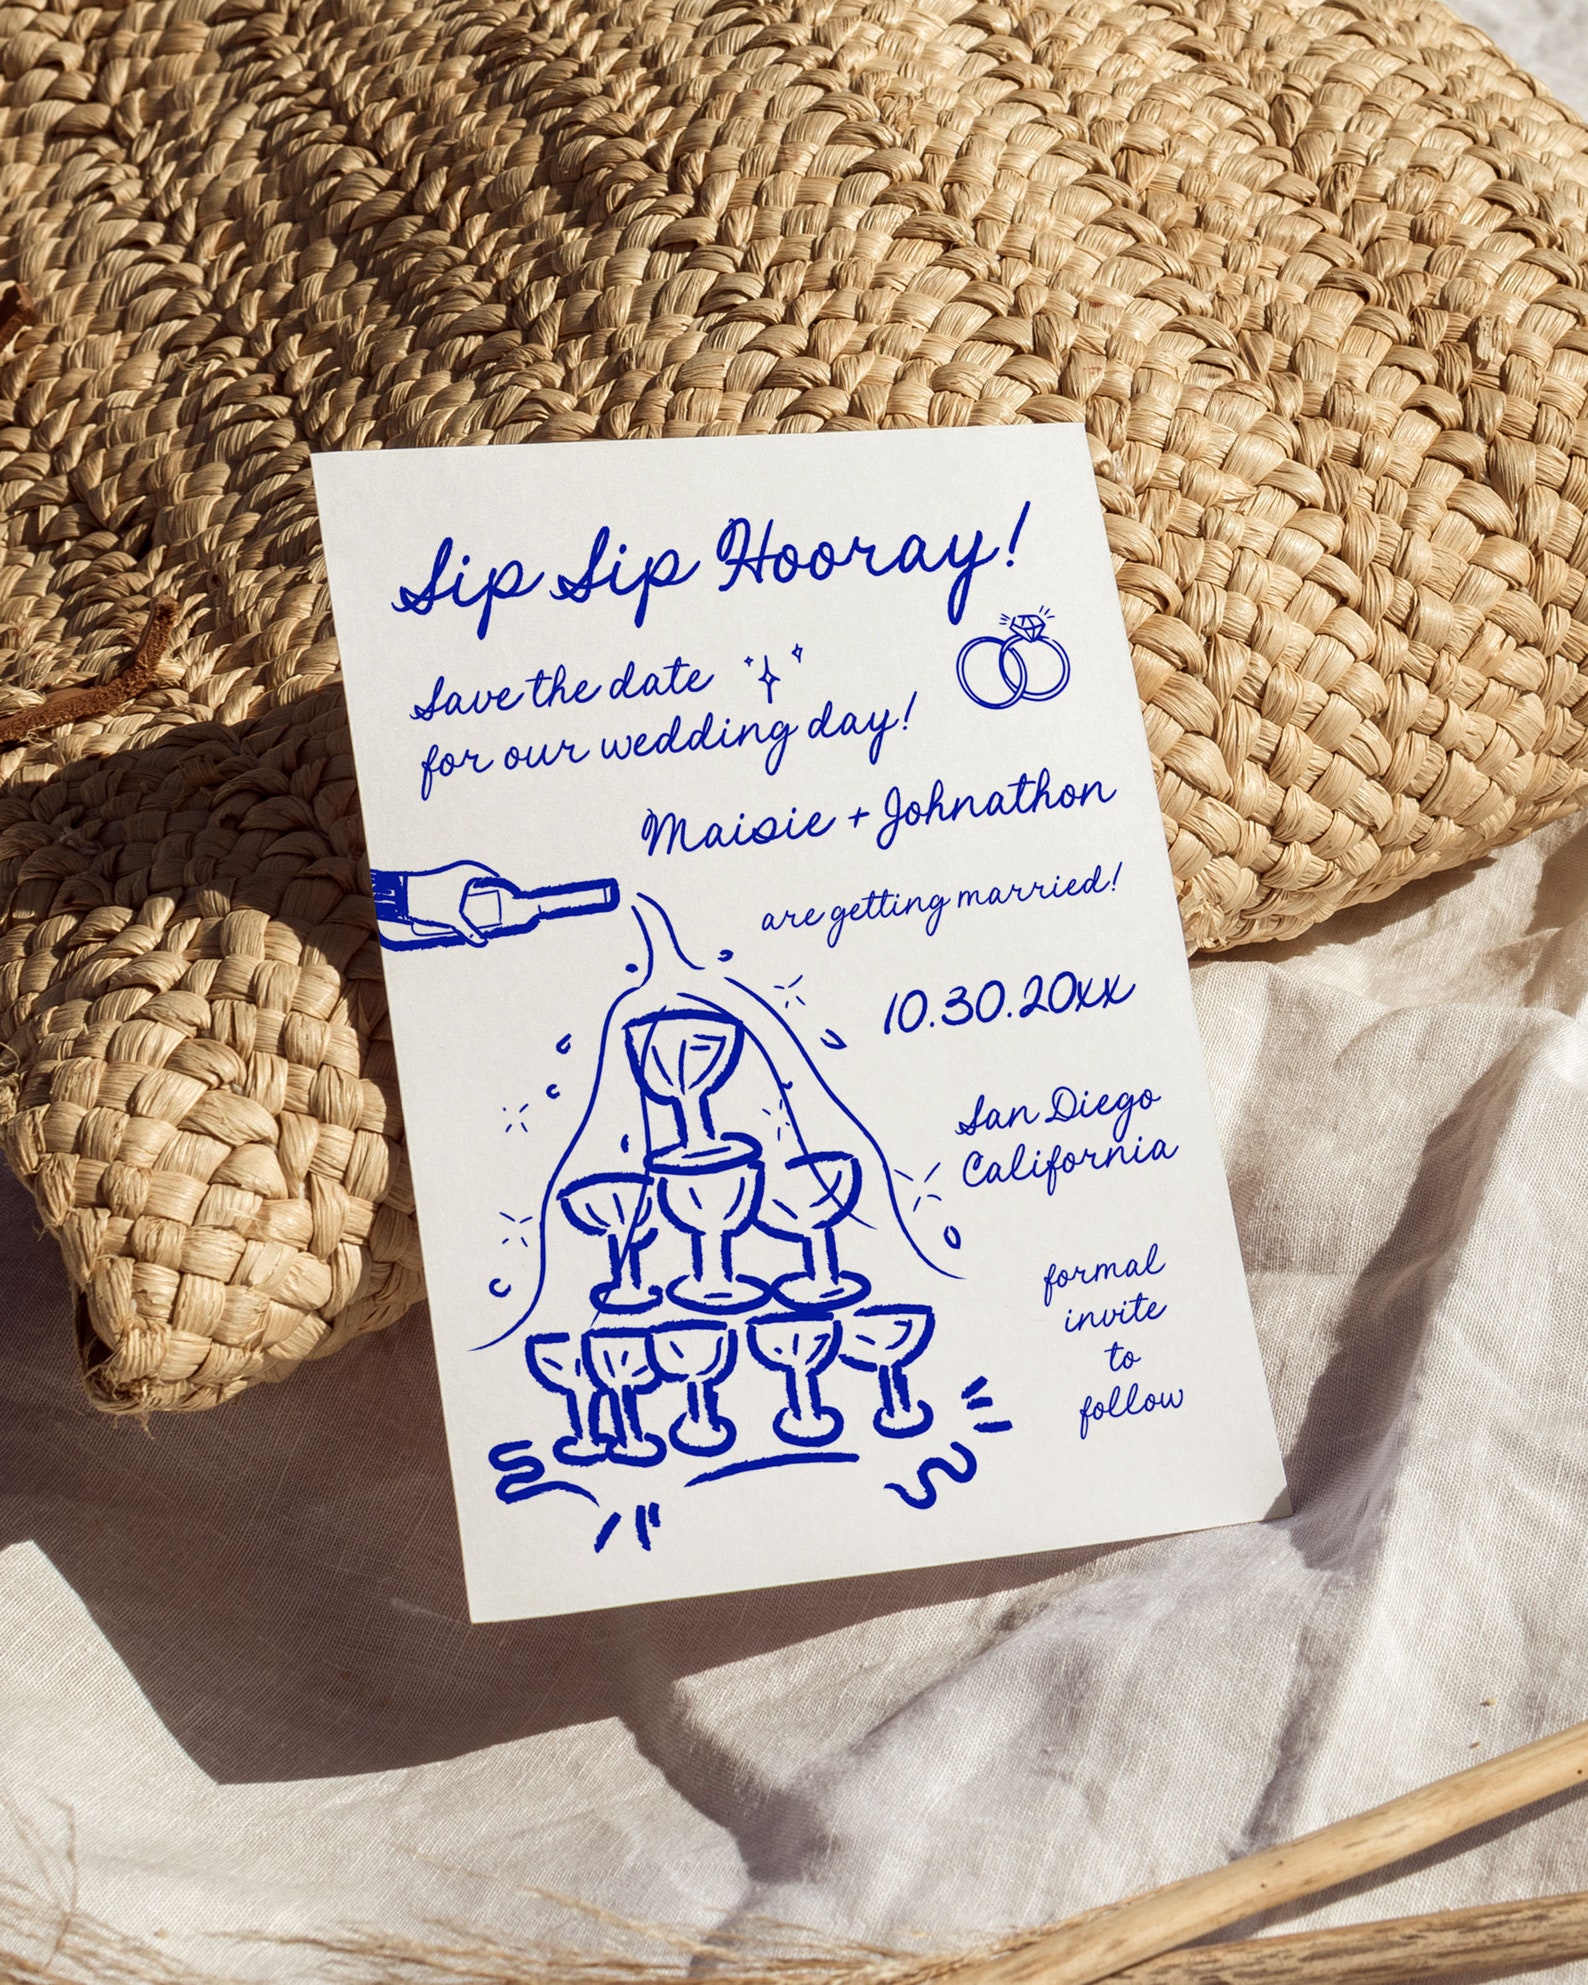 Sip Sip Hooray!
Save the date
for our wedding day!
Maisie + Johnathon
are getting married!
10.30.20xx
San Diego
California
formal
invite
to
follow